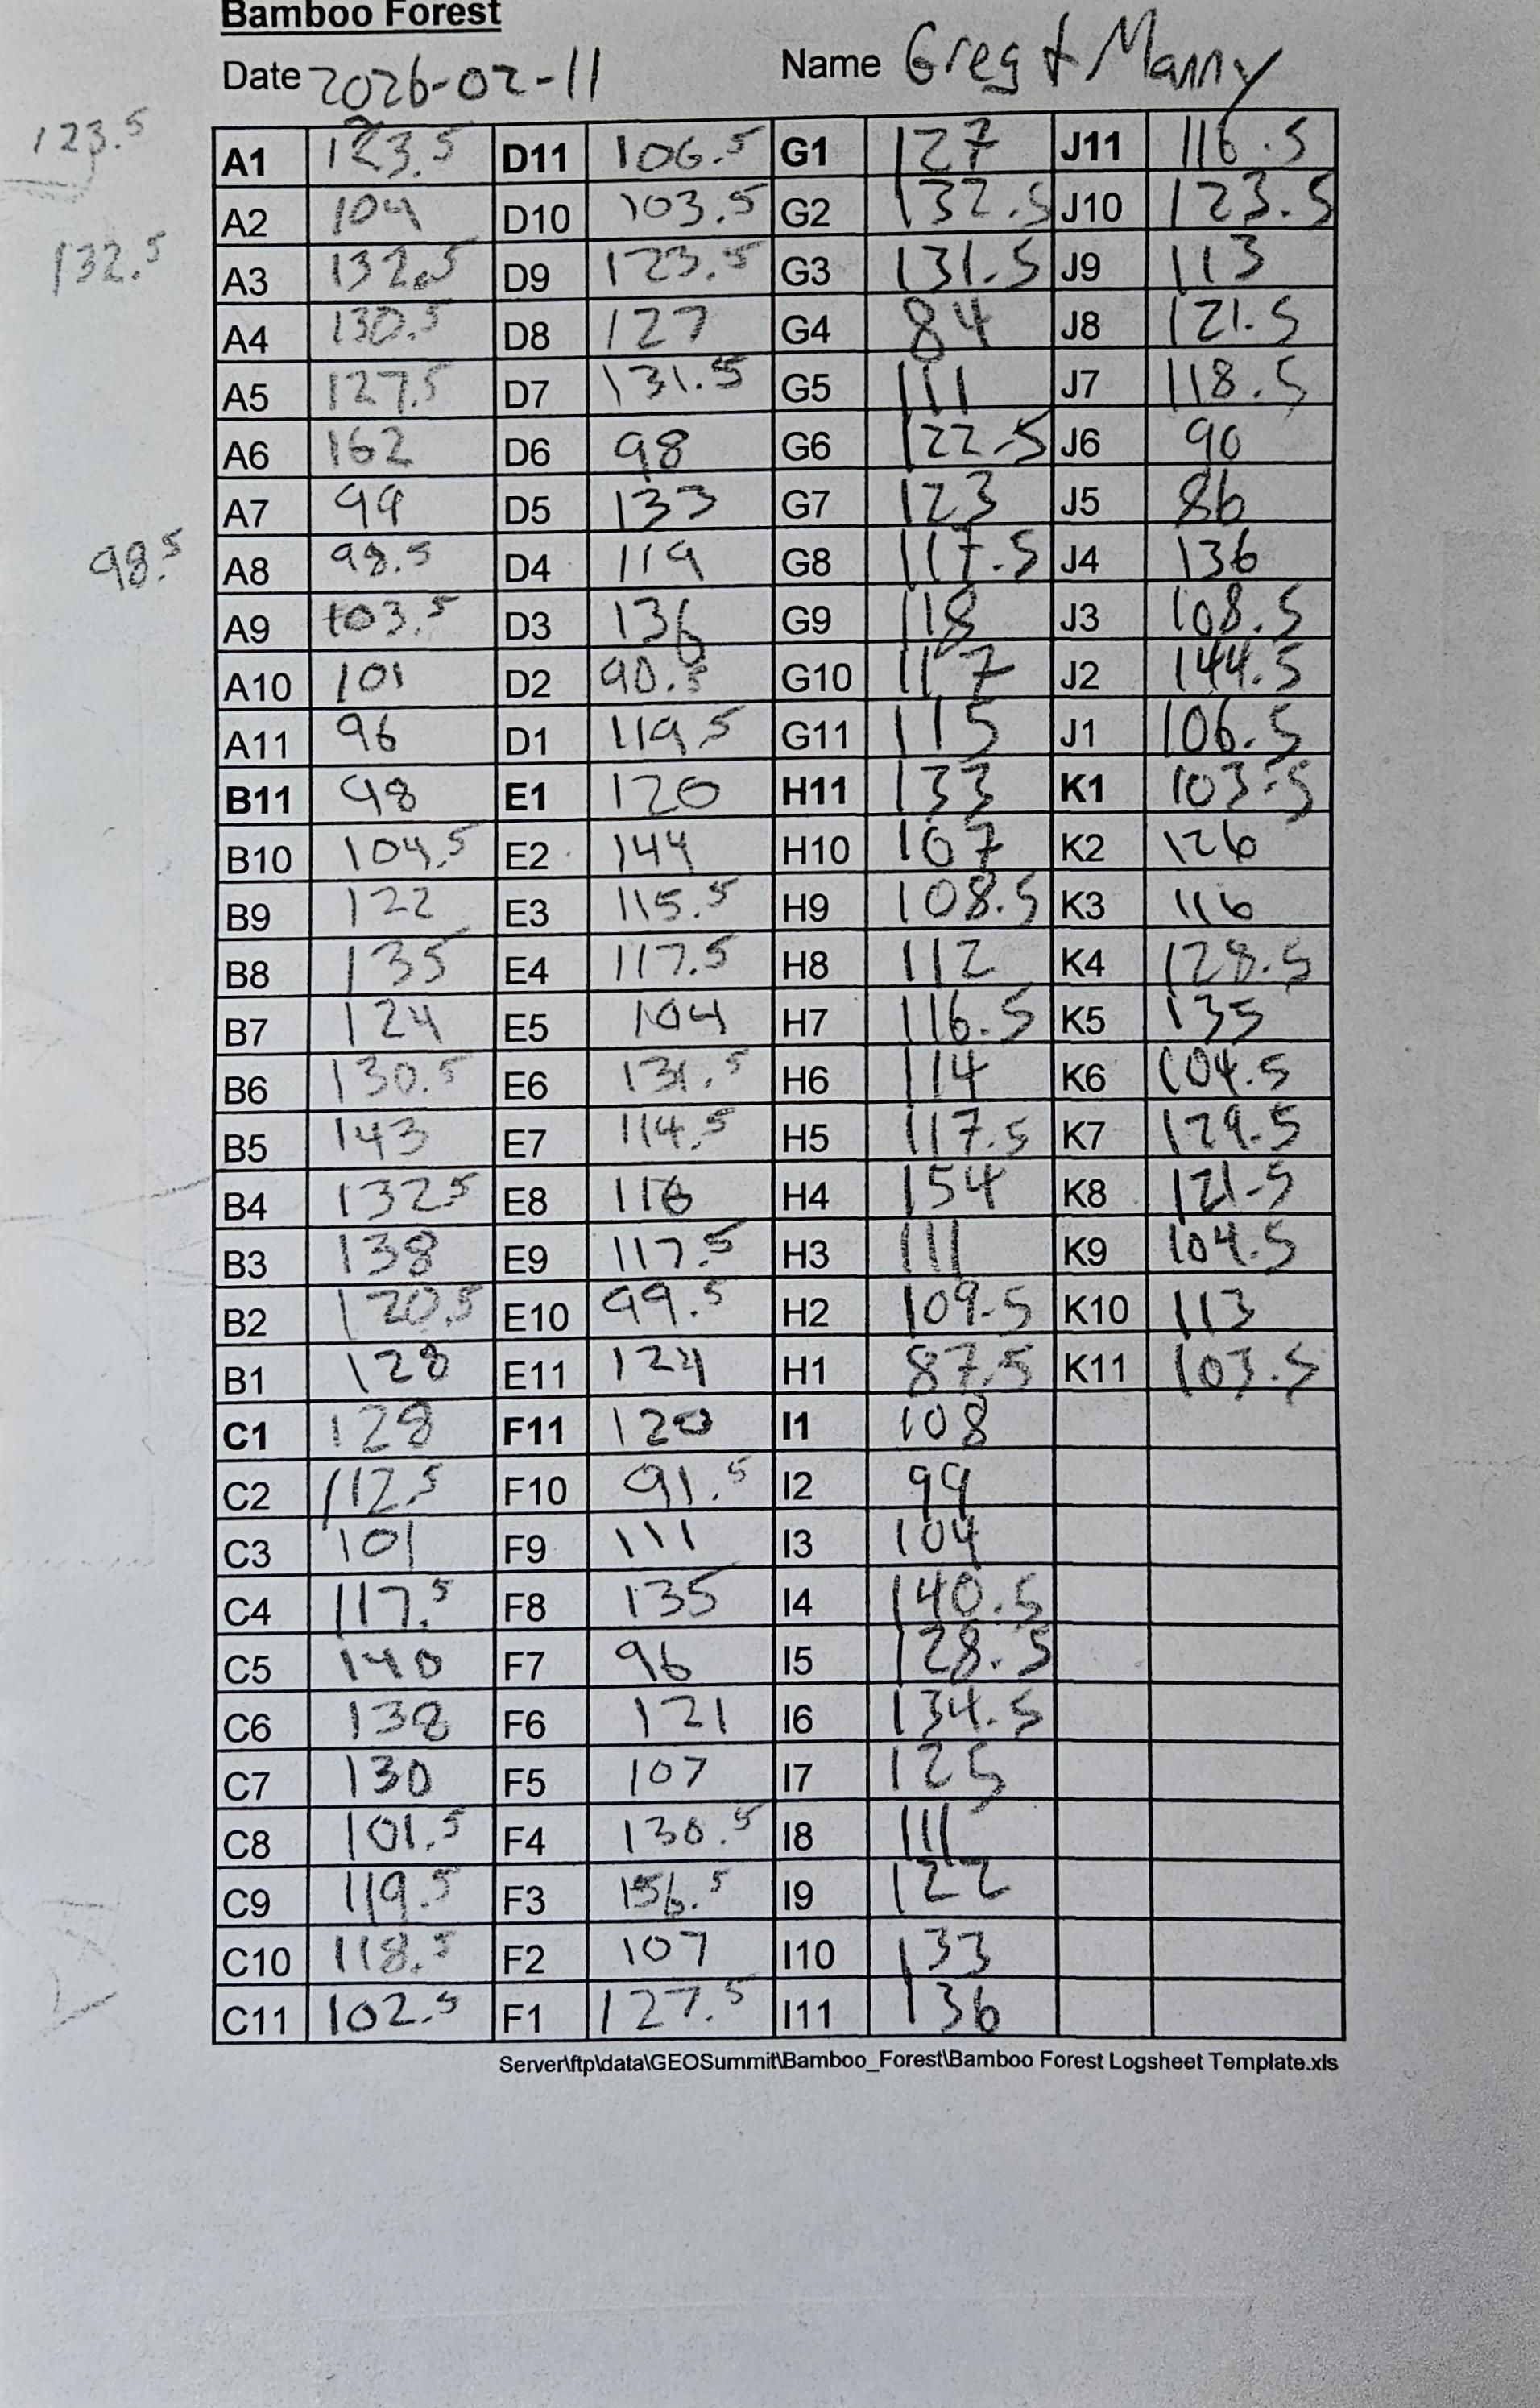 Bamboo Forest
Date 2026-02-11 Name Greg & Manny
123.5
A1 123.5 D11 106.5 G1 127 J11 116.5
A2 104 D10 103.5 G2 132.5 J10 123.5
132.5
A3 132.5 D9 123.5 G3 131.5 J9 113
A4 130.5 D8 127 G4 84 J8 121.5
A5 127.5 D7 131.5 G5 111 J7 118.5
A6 162 D6 98 G6 122.5 J6 90
A7 99 D5 133 G7 123 J5 86
98.5
A8 98.5 D4 119 G8 117.5 J4 136
A9 103.5 D3 136 G9 118 J3 108.5
A10 101 D2 90.5 G10 117 J2 144.5
A11 96 D1 119.5 G11 115 J1 106.5
B11 98 E1 120 H11 133 K1 103.5
B10 104.5 E2 144 H10 107 K2 126
B9 122 E3 115.5 H9 108.5 K3 116
B8 135 E4 117.5 H8 112 K4 128.5
B7 124 E5 104 H7 116.5 K5 135
B6 130.5 E6 131.5 H6 114 K6 104.5
B5 143 E7 114.5 H5 117.5 K7 129.5
B4 132.5 E8 116 H4 154 K8 121.5
B3 138 E9 117.5 H3 111 K9 104.5
B2 120.5 E10 99.5 H2 109.5 K10 113
B1 128 E11 124 H1 87.5 K11 103.5
C1 128 F11 120 I1 108
C2 112.5 F10 91.5 I2 99
C3 101 F9 111 I3 104
C4 117.5 F8 135 I4 140.5
C5 140 F7 96 I5 128.5
C6 138 F6 121 I6 134.5
C7 130 F5 107 I7 125
C8 101.5 F4 130.5 I8 111
C9 119.5 F3 156.5 I9 122
C10 118.5 F2 107 I10 133
C11 102.5 F1 127.5 I11 136
Server\ftp\data\GEOSummit\Bamboo_Forest\Bamboo Forest Logsheet Template.xls